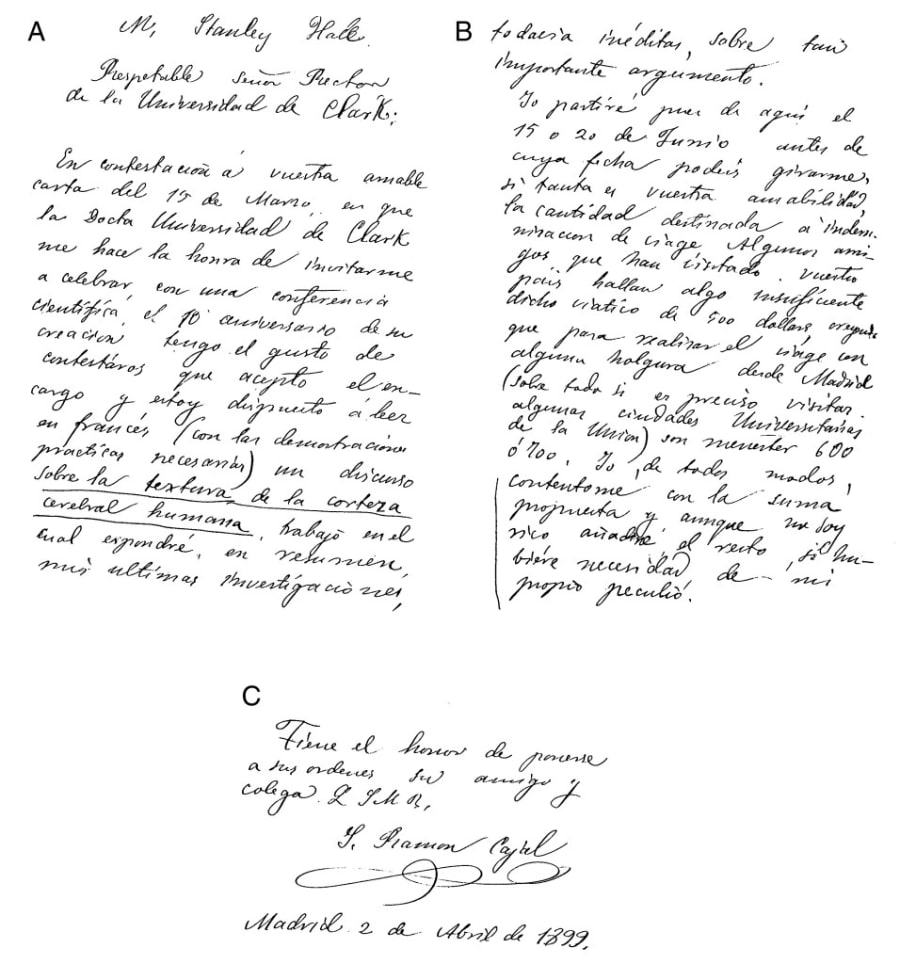 A
M, Stanley Hall.
Respetable Señor Rector
de la Universidad de Clark:
En contestación á vuestra amable
carta del 15 de Marzo, en que
la Docta Universidad de Clark
me hace la honra de invitarme
a celebrar con una conferencia
científica, el 10 aniversario de su
creación tengo el gusto de
contestaros que acepto el en-
cargo y estoy dispuesto á leer
en francés (con las demostraciones
practicas necesarias) un discurso
sobre la textura de la corteza
cerebral humana, trabajo en el
cual expondré, en resumen,
mis ultimas investigaciones,
B
todavia inéditas, sobre tan
importante argumento.
Yo partiré pues de aqui el
15 o 20 de Junio antes de
cuya fecha podeis girarme,
si tanta es vuestra amabilidad,
la cantidad destinada a indem-
nizacion de viage. Algunos ami-
gos que han visitado vuestro
pais hallan algo insuficiente
dicho viatico de 500 dollars,
que para realizar el viage con
alguna holgura desde Madrid
(sobre todo si es preciso visitar
algunas ciudades Universitarias
de la Union) son menester 600
ó 700. Yo, de todos modos,
contentome con la suma
propuesta y aunque no soy
rico añadiré el resto, si hu-
biére necesidad de mi
propio peculió.
C
Tiene el honor de ponerse
a sus ordenes su amigo y
colega.
S. Ramon Cajal
Madrid 2 de Abril de 1899.